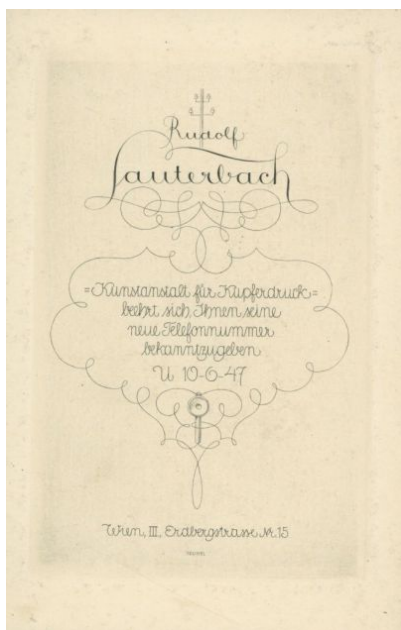 Rudolf
Lauterbach
=Kunstanstalt für Kupferdruck=
beehrt sich, Ihnen seine
neue Telefonnummer
bekanntzugeben
U 10-6-47
Wien, III, Erdbergstrasse Nr. 15